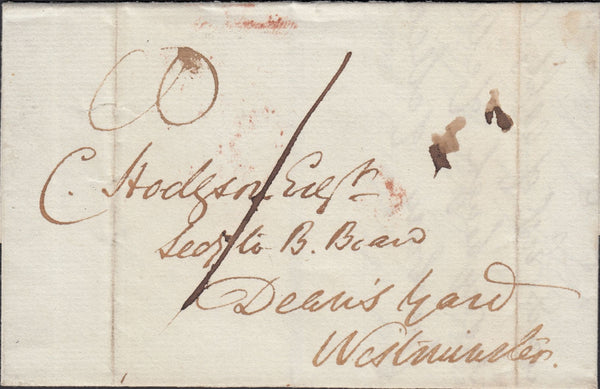 C. Hodgson Esqr.
Secy to B. Board
Dean's Yard
Westminster.